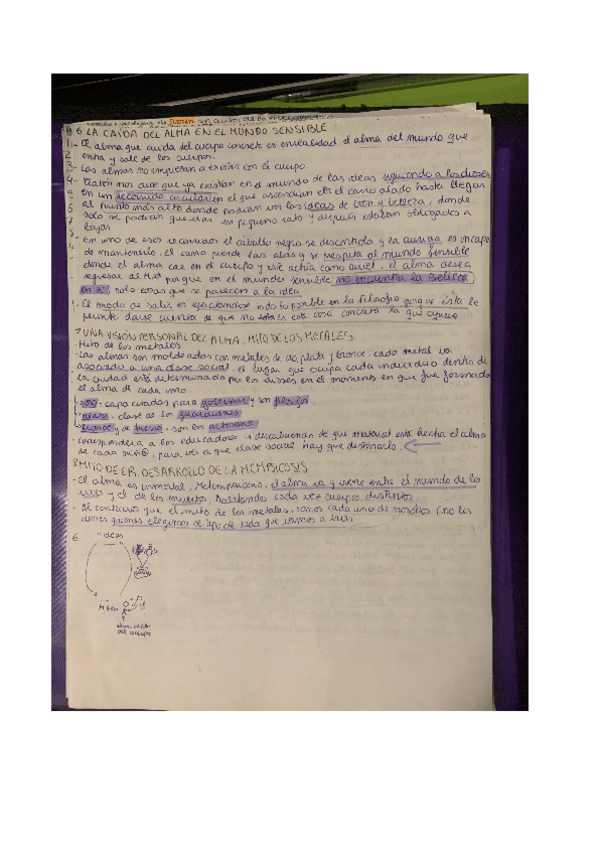 6 LA CAÍDA DEL ALMA EN EL MUNDO SENSIBLE
- El alma que cuida del cuerpo concreto es en realidad el alma del mundo que
entra y sale de los cuerpos.
- Las almas no empiezan a existir con el cuerpo
- Platón nos dice que ya existían en el mundo de las ideas siguiendo a los dioses
en un recorrido circular en el que ascendían en el carro alado hasta llegar
al punto más alto donde podían ver las ideas de bien y belleza, donde
solo se podían quedar un pequeño rato y después estaban obligadas a
bajar
- En uno de esos recorridos el caballo negro se descontrola y la auriga es incapaz
de mantenerlo. el carro pierde las alas y se
donde el alma cae en el cuerpo y este actúa como cárcel, el alma desea
regresar al M.I porque en el mundo sensible no encuentra la belleza
en sí, solo cosas que se parecen a la idea
- El modo de salir es ejercitándose todo lo posible en la filosofía porque ésta le
permite darse cuenta de que no es esta cosa concreta la que
7 UNA VISIÓN PERSONAL DEL ALMA. MITO DE LOS METALES
- Mito de los metales
- Las almas son moldeadas con metales de oro, plata y bronce. cada metal va
asociado a una clase social. el lugar que ocupa cada individuo dentro de
la ciudad está determinado por los dioses en el momento en que fue formada
el alma de cada uno
- oro - capacitados para gobernar y son filósofos
- plata - clase de los guardianes
- bronce y de hierro - son los artesanos
- corresponderá a los educadores ir descubriendo de que material está hecha el alma
de cada niño, para ver a que clase social hay que destinarlo.
8 MITO DE ER. DESARROLLO DE LA METEMPSICOSIS
- El alma es inmortal, Metempsicosis, el alma va y viene entre el mundo de los
vivos y el de los muertos, habitando cada vez cuerpos distintos.
- Al contrario que el mito de los metales, somos cada uno de nosotros (no los
dioses quienes elegimos el tipo de vida que vamos a vivir
6
Ideas
del cuerpo